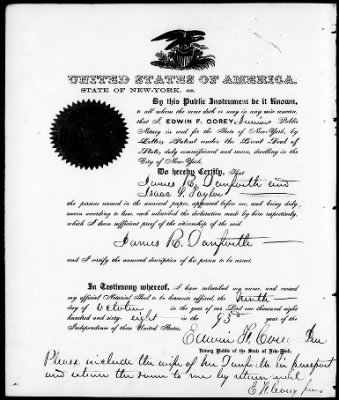 UNITED STATES OF AMERICA.
STATE OF NEW-YORK, ss.
By this Public Instrument be it Known,
to all whom the same doth or may in any wise concern,
that I, EDWIN F. COREY, Junior Public
Notary in and for the State of New-York, by
Letters Patent under the Great Seal of
State, duly commissioned and sworn, dwelling in the
City of New-York.
Do hereby Certify, That
James R. Danforth and
Isaac Taylor
the persons named in the annexed paper, appeared before me, and being duly
sworn according to law, each subscribed the declaration made by him respectively,
which I deem sufficient proof of the citizenship of the said
James R. Danforth
and I verify the annexed description of his person to be correct.
In Testimony whereof, I have subscribed my name, and caused
my official Notarial Seal to be hereunto affixed, the tenth
day of October in the year of our Lord one thousand eight
hundred and sixty-eight in the 93d year of the
Independence of these United States.
Edwin F. Corey Jun
Notary Public of the State of New-York.
Please include the wife of Mr Danforth in passport
and return the same to me by return mail
E. F. Corey Jun